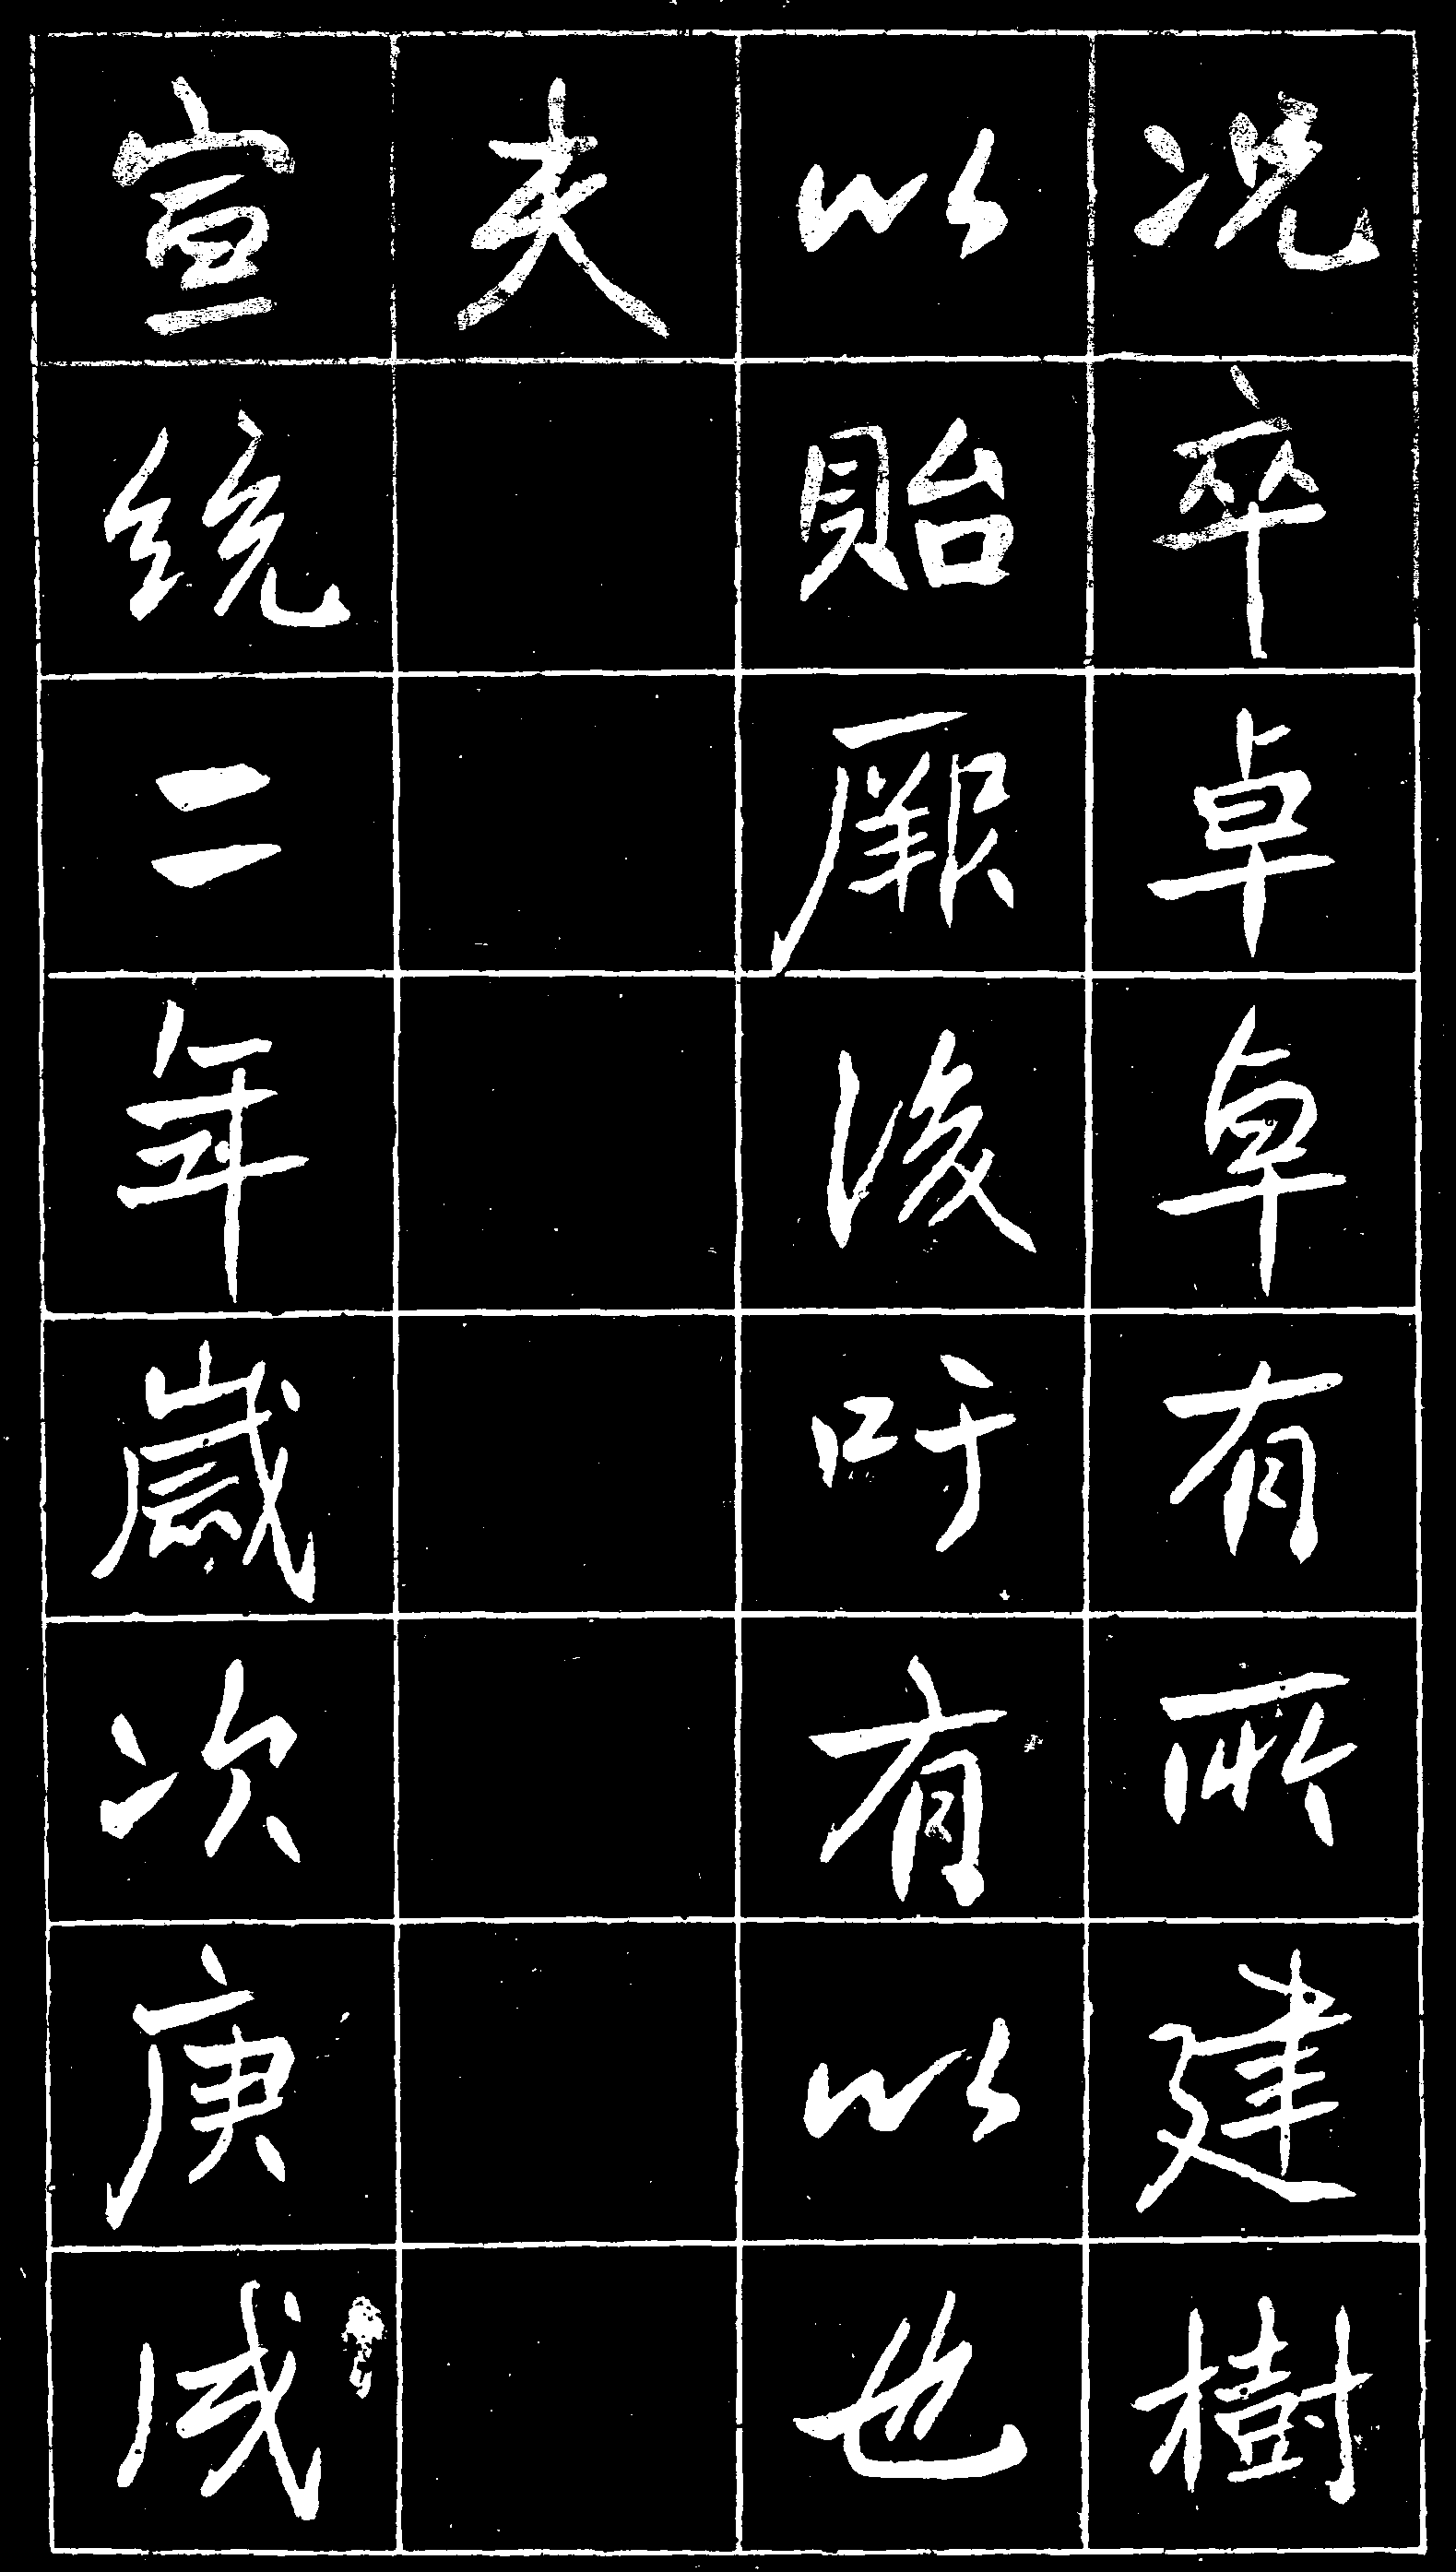 况卒卓卓有所建樹
以貽厥後吁有以也
夫
宣統二年歲次庚戌